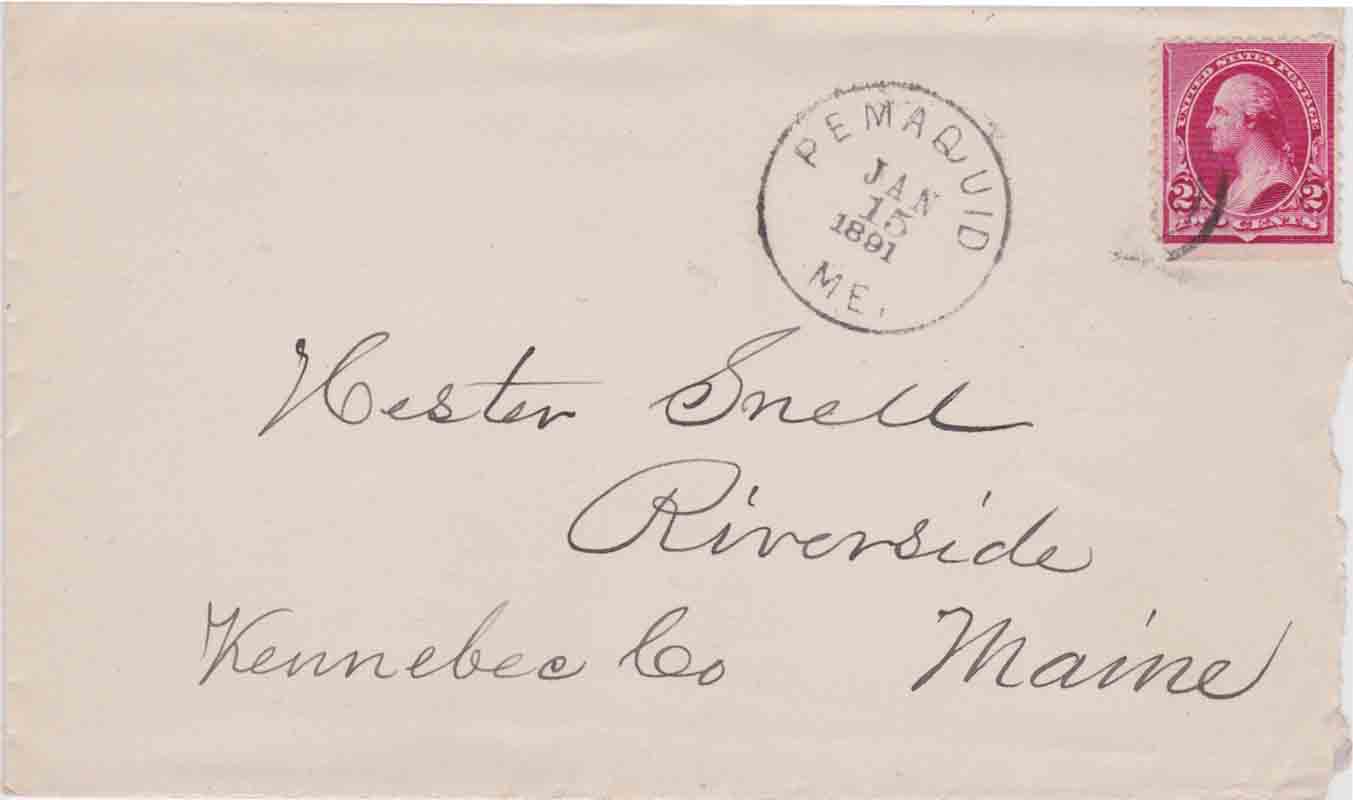 UNITED STATES POSTAGE
2 2
TWO CENTS
PEMAQUID
JAN
15
1891
ME.
Hester Snell
Riverside
Kennebec Co Maine